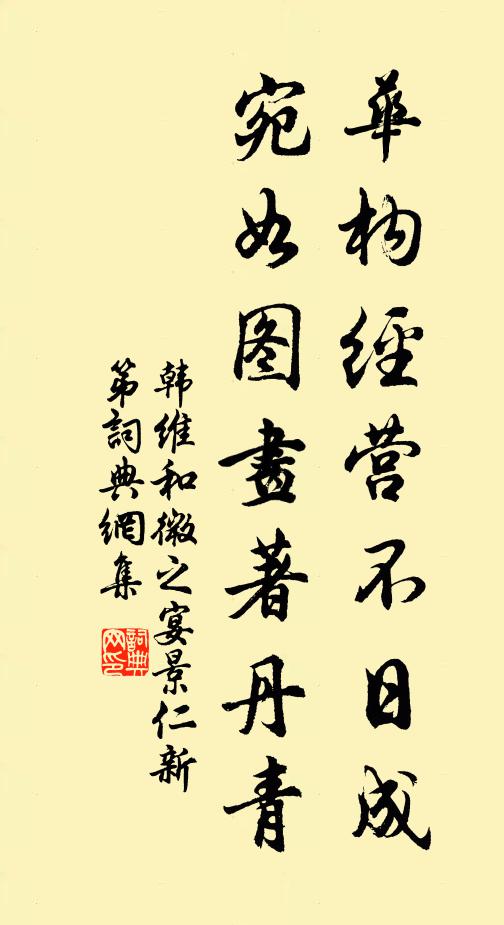 華构經营不日成
宛如图畫著丹青
韩維和微之宴景仁新
第詞典網集
詞典网印